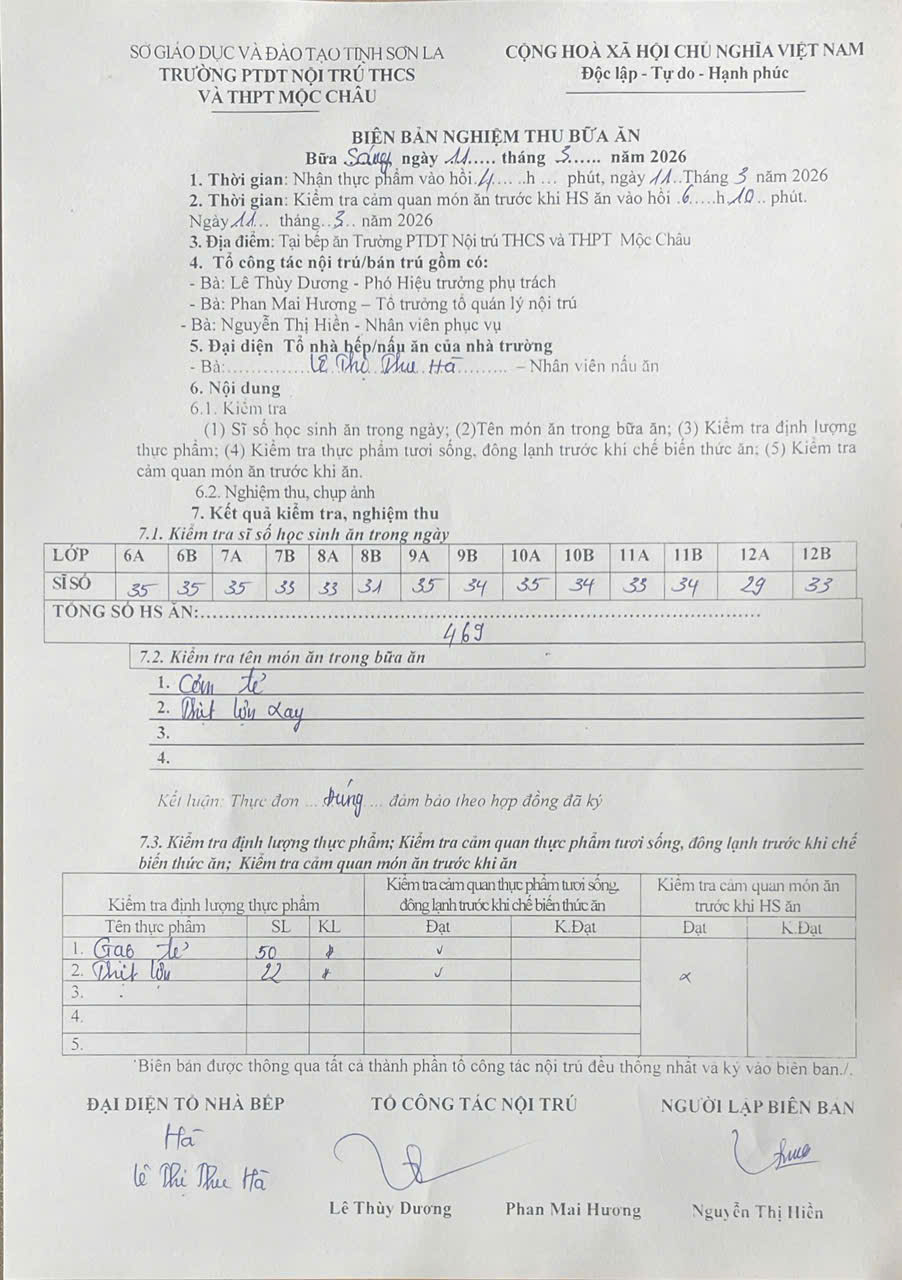 SỞ GIÁO DỤC VÀ ĐÀO TẠO TỈNH SƠN LA
TRƯỜNG PTDT NỘI TRÚ THCS
VÀ THPT MỘC CHÂU
CỘNG HOÀ XÃ HỘI CHỦ NGHĨA VIỆT NAM
Độc lập - Tự do - Hạnh phúc
BIÊN BẢN NGHIỆM THU BỮA ĂN
Bữa Sáng ngày 11..... tháng 3...... năm 2026
1. Thời gian: Nhận thực phẩm vào hồi.4..... ..h ... phút, ngày 11..Tháng 3 năm 2026
2. Thời gian: Kiểm tra cảm quan món ăn trước khi HS ăn vào hồi .6.....h.10.. phút.
Ngày 11... tháng..3.. năm 2026
3. Địa điểm: Tại bếp ăn Trường PTDT Nội trú THCS và THPT Mộc Châu
4. Tổ công tác nội trú/bán trú gồm có:
- Bà: Lê Thùy Dương - Phó Hiệu trưởng phụ trách
- Bà: Phan Mai Hương – Tổ trưởng tổ quản lý nội trú
- Bà: Nguyễn Thị Hiền - Nhân viên phục vụ
5. Đại diện Tổ nhà bếp/nấu ăn của nhà trường
- Bà:.............Lê Thị Thu Hà......... – Nhân viên nấu ăn
6. Nội dung
6.1. Kiểm tra
(1) Sĩ số học sinh ăn trong ngày; (2)Tên món ăn trong bữa ăn; (3) Kiểm tra định lượng
thực phẩm; (4) Kiểm tra thực phẩm tươi sống, đông lạnh trước khi chế biến thức ăn; (5) Kiểm tra
cảm quan món ăn trước khi ăn.
6.2. Nghiệm thu, chụp ảnh
7. Kết quả kiểm tra, nghiệm thu
7.1. Kiểm tra sĩ số học sinh ăn trong ngày
LỚP 6A 6B 7A 7B 8A 8B 9A 9B 10A 10B 11A 11B 12A 12B
SĨ SỐ 35 35 35 33 33 31 35 34 35 34 33 34 29 33
TỔNG SỐ HS ĂN:..............................
469
7.2. Kiểm tra tên món ăn trong bữa ăn
1. Cơm tẻ
2. Thịt lợn xay
3.
4.
Kết luận: Thực đơn ... đúng ... đảm bảo theo hợp đồng đã ký
7.3. Kiểm tra định lượng thực phẩm; Kiểm tra cảm quan thực phẩm tươi sống, đông lạnh trước khi chế
biến thức ăn; Kiểm tra cảm quan món ăn trước khi ăn
Kiểm tra định lượng thực phẩm
Kiểm tra cảm quan thực phẩm tươi sống,
đông lạnh trước khi chế biến thức ăn
Kiểm tra cảm quan món ăn
trước khi HS ăn
Tên thực phẩm SL KL Đạt K.Đạt Đạt K.Đạt
1. Gạo tẻ 50 ✓
2. Thịt lợn 22 ✓ x
3.
4.
5.
Biên bản được thông qua tất cả thành phần tổ công tác nội trú đều thống nhất và ký vào biên bản./.
ĐẠI DIỆN TỔ NHÀ BẾP TỔ CÔNG TÁC NỘI TRÚ NGƯỜI LẬP BIÊN BẢN
Hà
Lê Thị Thu Hà
Lê Thùy Dương Phan Mai Hương Nguyễn Thị Hiền